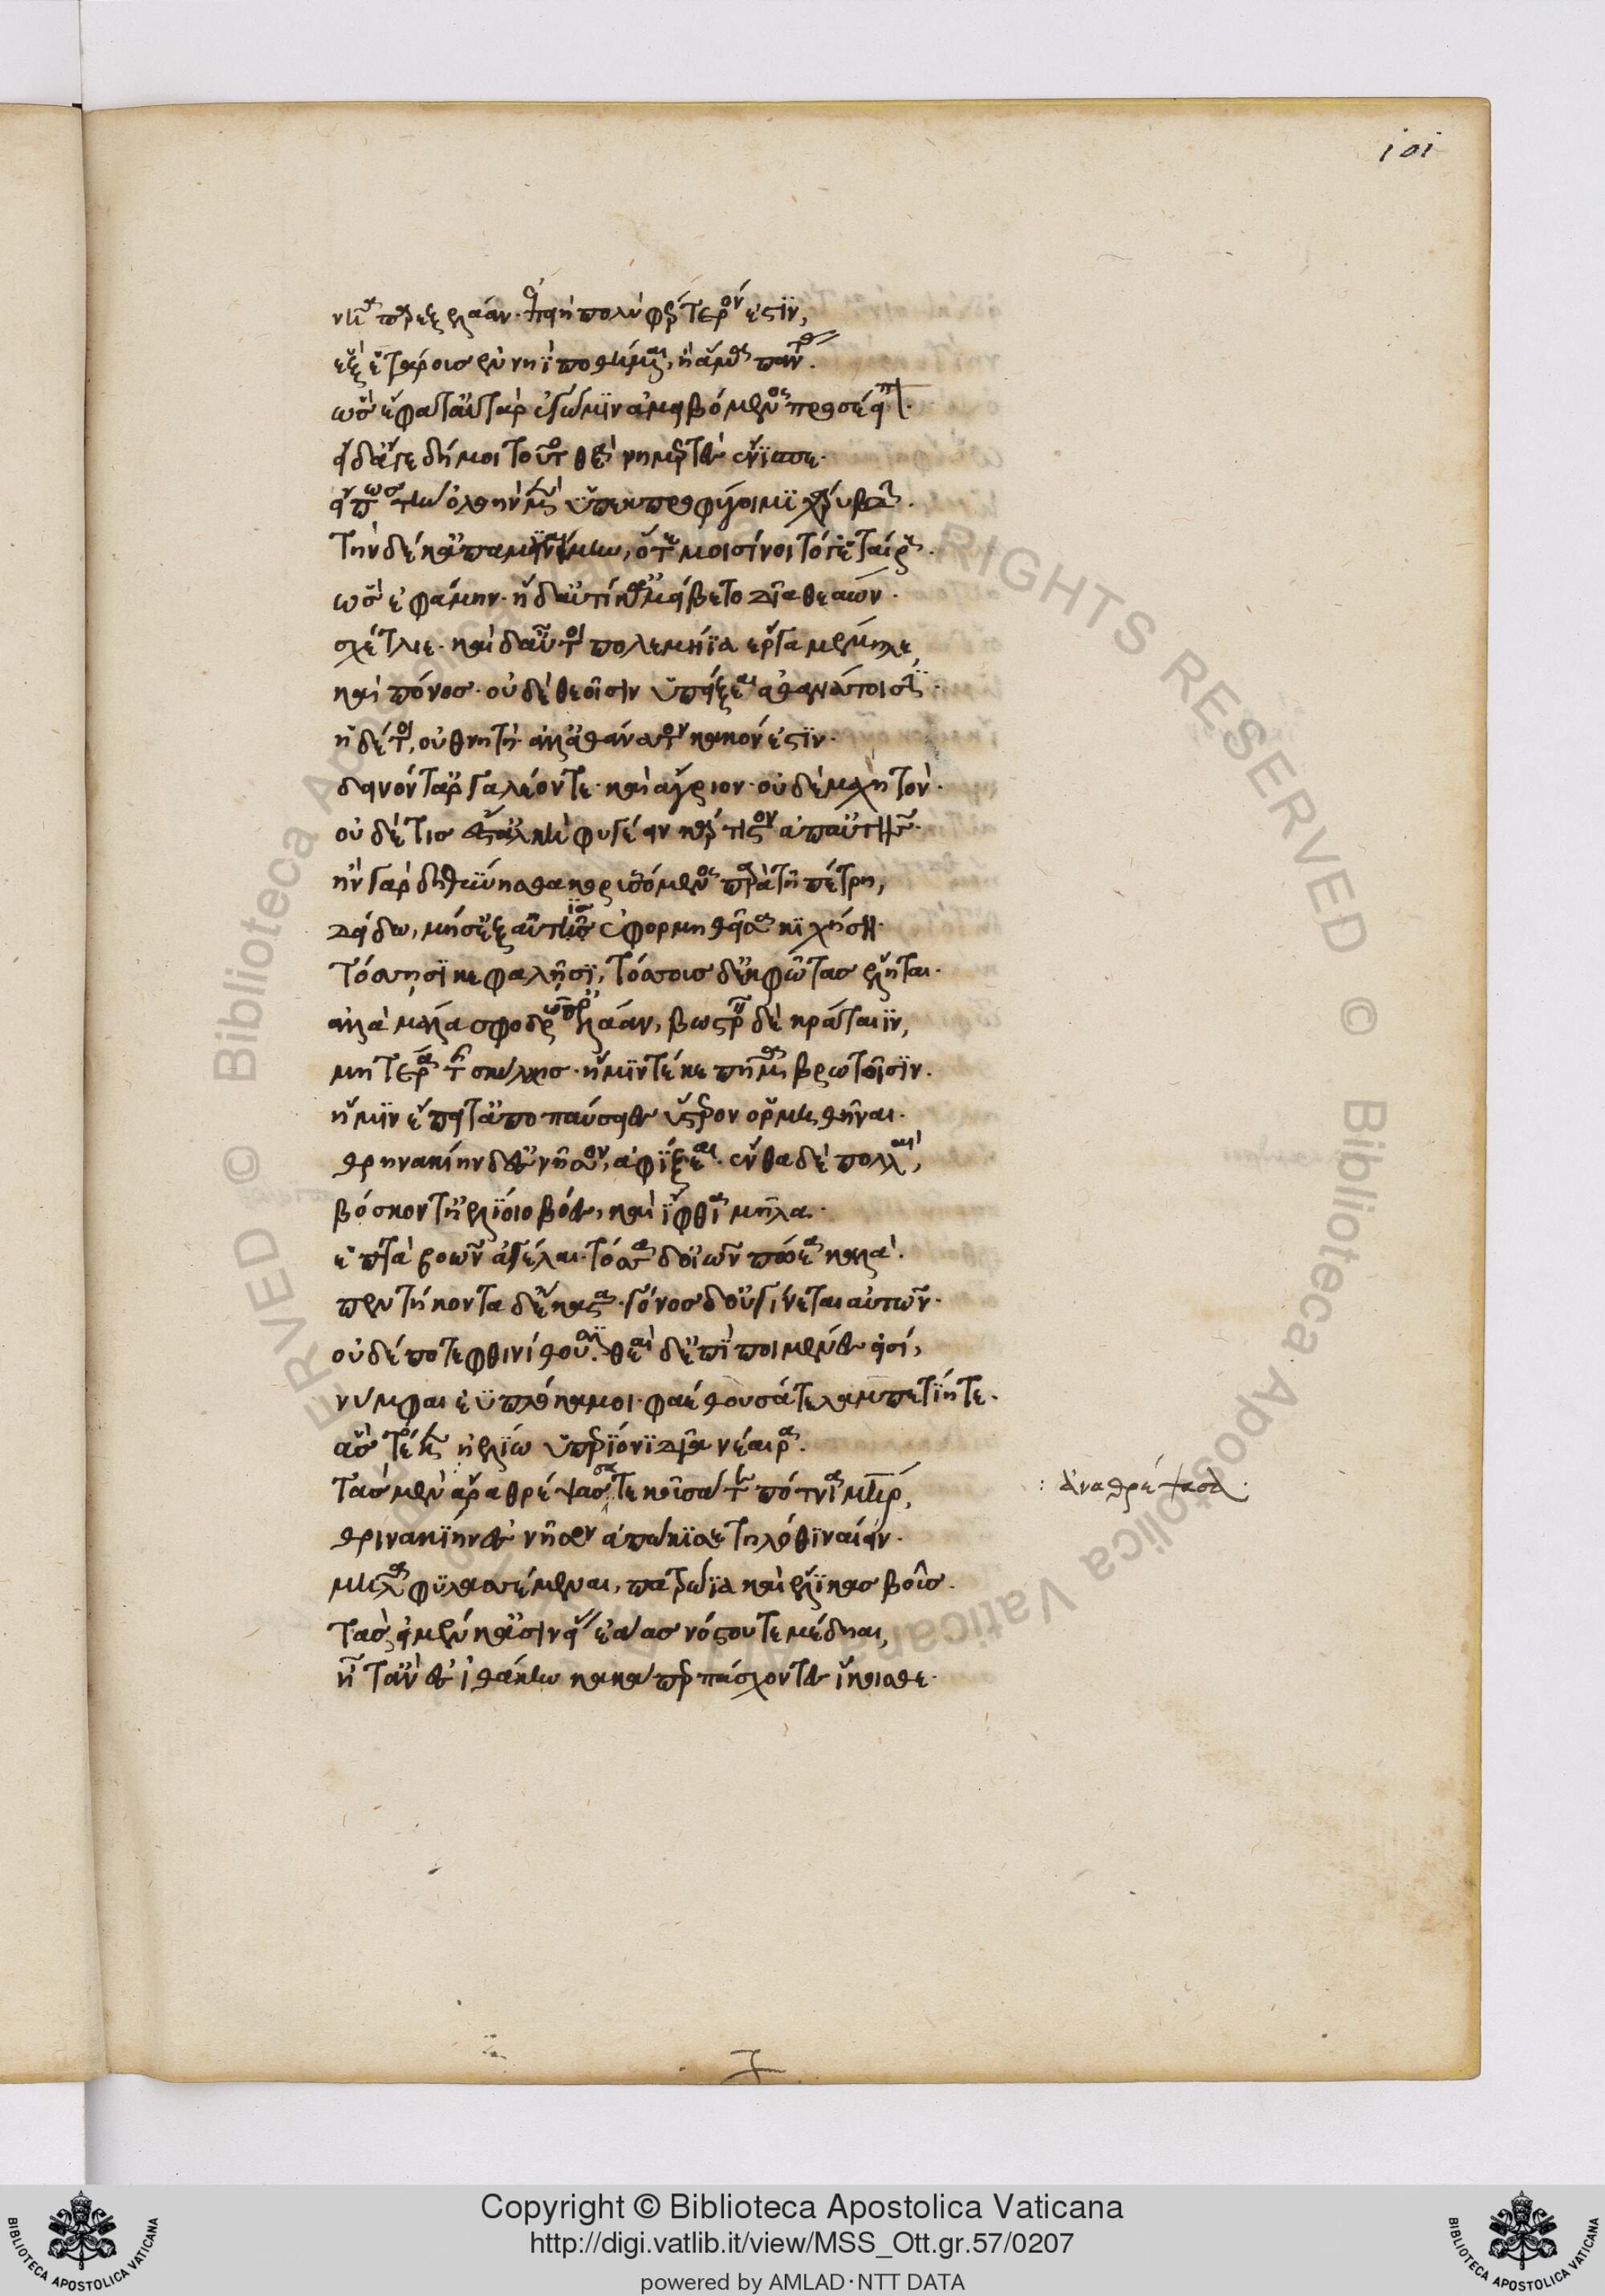 101
νῆα παρὲξ ἐλάαν· ἐπειὴ πολὺ φέρτερόν ἐστιν,
ἓξ ἑτάρους ἐν νηῒ ποθήμεναι, ἢ ἅμα πάντας.
ὣς ἔφατ' αὐτὰρ ἐγώ μιν ἀμειβόμενος προσέειπον.
εἰ δ' ἄγε δή μοι τοῦτο θεὰ νημερτὲς ἔνισπε·
εἴ πως τὴν ὀλοὴν μὲν ὑπεκπροφύγοιμι χάρυβδιν.
τὴν δέ κ' ἀμυναίμην, ὅτε μοι σίνοιτό γ' ἑταίρους.
ὣς ἐφάμην· ἡ δ' αὐτίκ' ἀμείβετο δῖα θεάων.
σχέτλιε· καὶ δ' αὖ τοι πολεμήϊα ἔργα μέμηλε,
καὶ πόνος· οὐδὲ θεοῖσιν ὑπείξεαι ἀθανάτοισι·
ἡ δέ τοι, οὐ θνητή· ἀλλ' ἀθάνατον κακόν ἐστιν·
δεινόν τ' ἀργαλέον τε· καὶ ἄγριον· οὐδὲ μαχητόν·
οὐδέ τις ἔστ' ἀλκὴ φυγέειν κάρτιστον ἀπ' αὐτῆς·
ἢν γὰρ δηθύνησθα κορυσσόμενος παρὰ πέτρῃ,
δείδω, μή σ' ἐξαῦτις ἐφορμηθεῖσα κιχήσῃ·
τόσσῃσι κεφαλῇσι, τόσσους δ' ἐκ φῶτας ἕληται·
ἀλλὰ μάλα σφοδρῶς ἐλάαν, βωστρεῖν δὲ κράταιιν,
μητέρα τῆς σκύλλης· ἥ μιν τέκε πῆμα βροτοῖσιν·
ἥ μιν ἔπειτ' ἀποπαύσει ἐς ὕστερον ὁρμηθῆναι·
θρηνακίην δ' ἐς νῆσον, ἀφίξεαι· ἔνθα δὲ πολλαί,
βόσκοντ' ἠελίοιο βόες, καὶ ἴφια μῆλα·
ἑπτὰ βοῶν ἀγέλαι· τόσα δ' οἰῶν πώεα καλά·
πεντήκοντα δ' ἕκαστα· γόνος δ' οὐ γίνεται αὐτῶν·
οὐδέ ποτε φθινύθουσι· θεαὶ δ' ἐπὶ ποιμένες εἰσί,
νύμφαι ἐϋπλόκαμοι· φαέθουσά τε λαμπετίη τε·
ἃς τέκεν ἠελίῳ ὑπερίονι δῖα νέαιρα·
τὰς μὲν ἄρα θρέψασα τεκοῦσά τε πότνια μήτηρ,
: ἀναθρέψασα ·
θρινακίην ἐς νῆσον ἀπῴκισε τηλόθι ναίειν·
μῆλα φυλασσέμεναι, πατρώϊα καὶ ἕλικας βοῦς·
τὰς εἰ μέν κ' ἀσινέας ἐάας νόστου τε μέδηαι,
ἦ τ' ἂν ἔτ' εἰς ἰθάκην κακά περ πάσχοντες ἵκοισθε·
RIGHTS RESERVED © Biblioteca Apostolica Vaticana
Copyright © Biblioteca Apostolica Vaticana
http://digi.vatlib.it/view/MSS_Ott.gr.57/0207
powered by AMLAD·NTT DATA
BIBLIOTECA APOSTOLICA VATICANA
BIBLIOTECA APOSTOLICA VATICANA